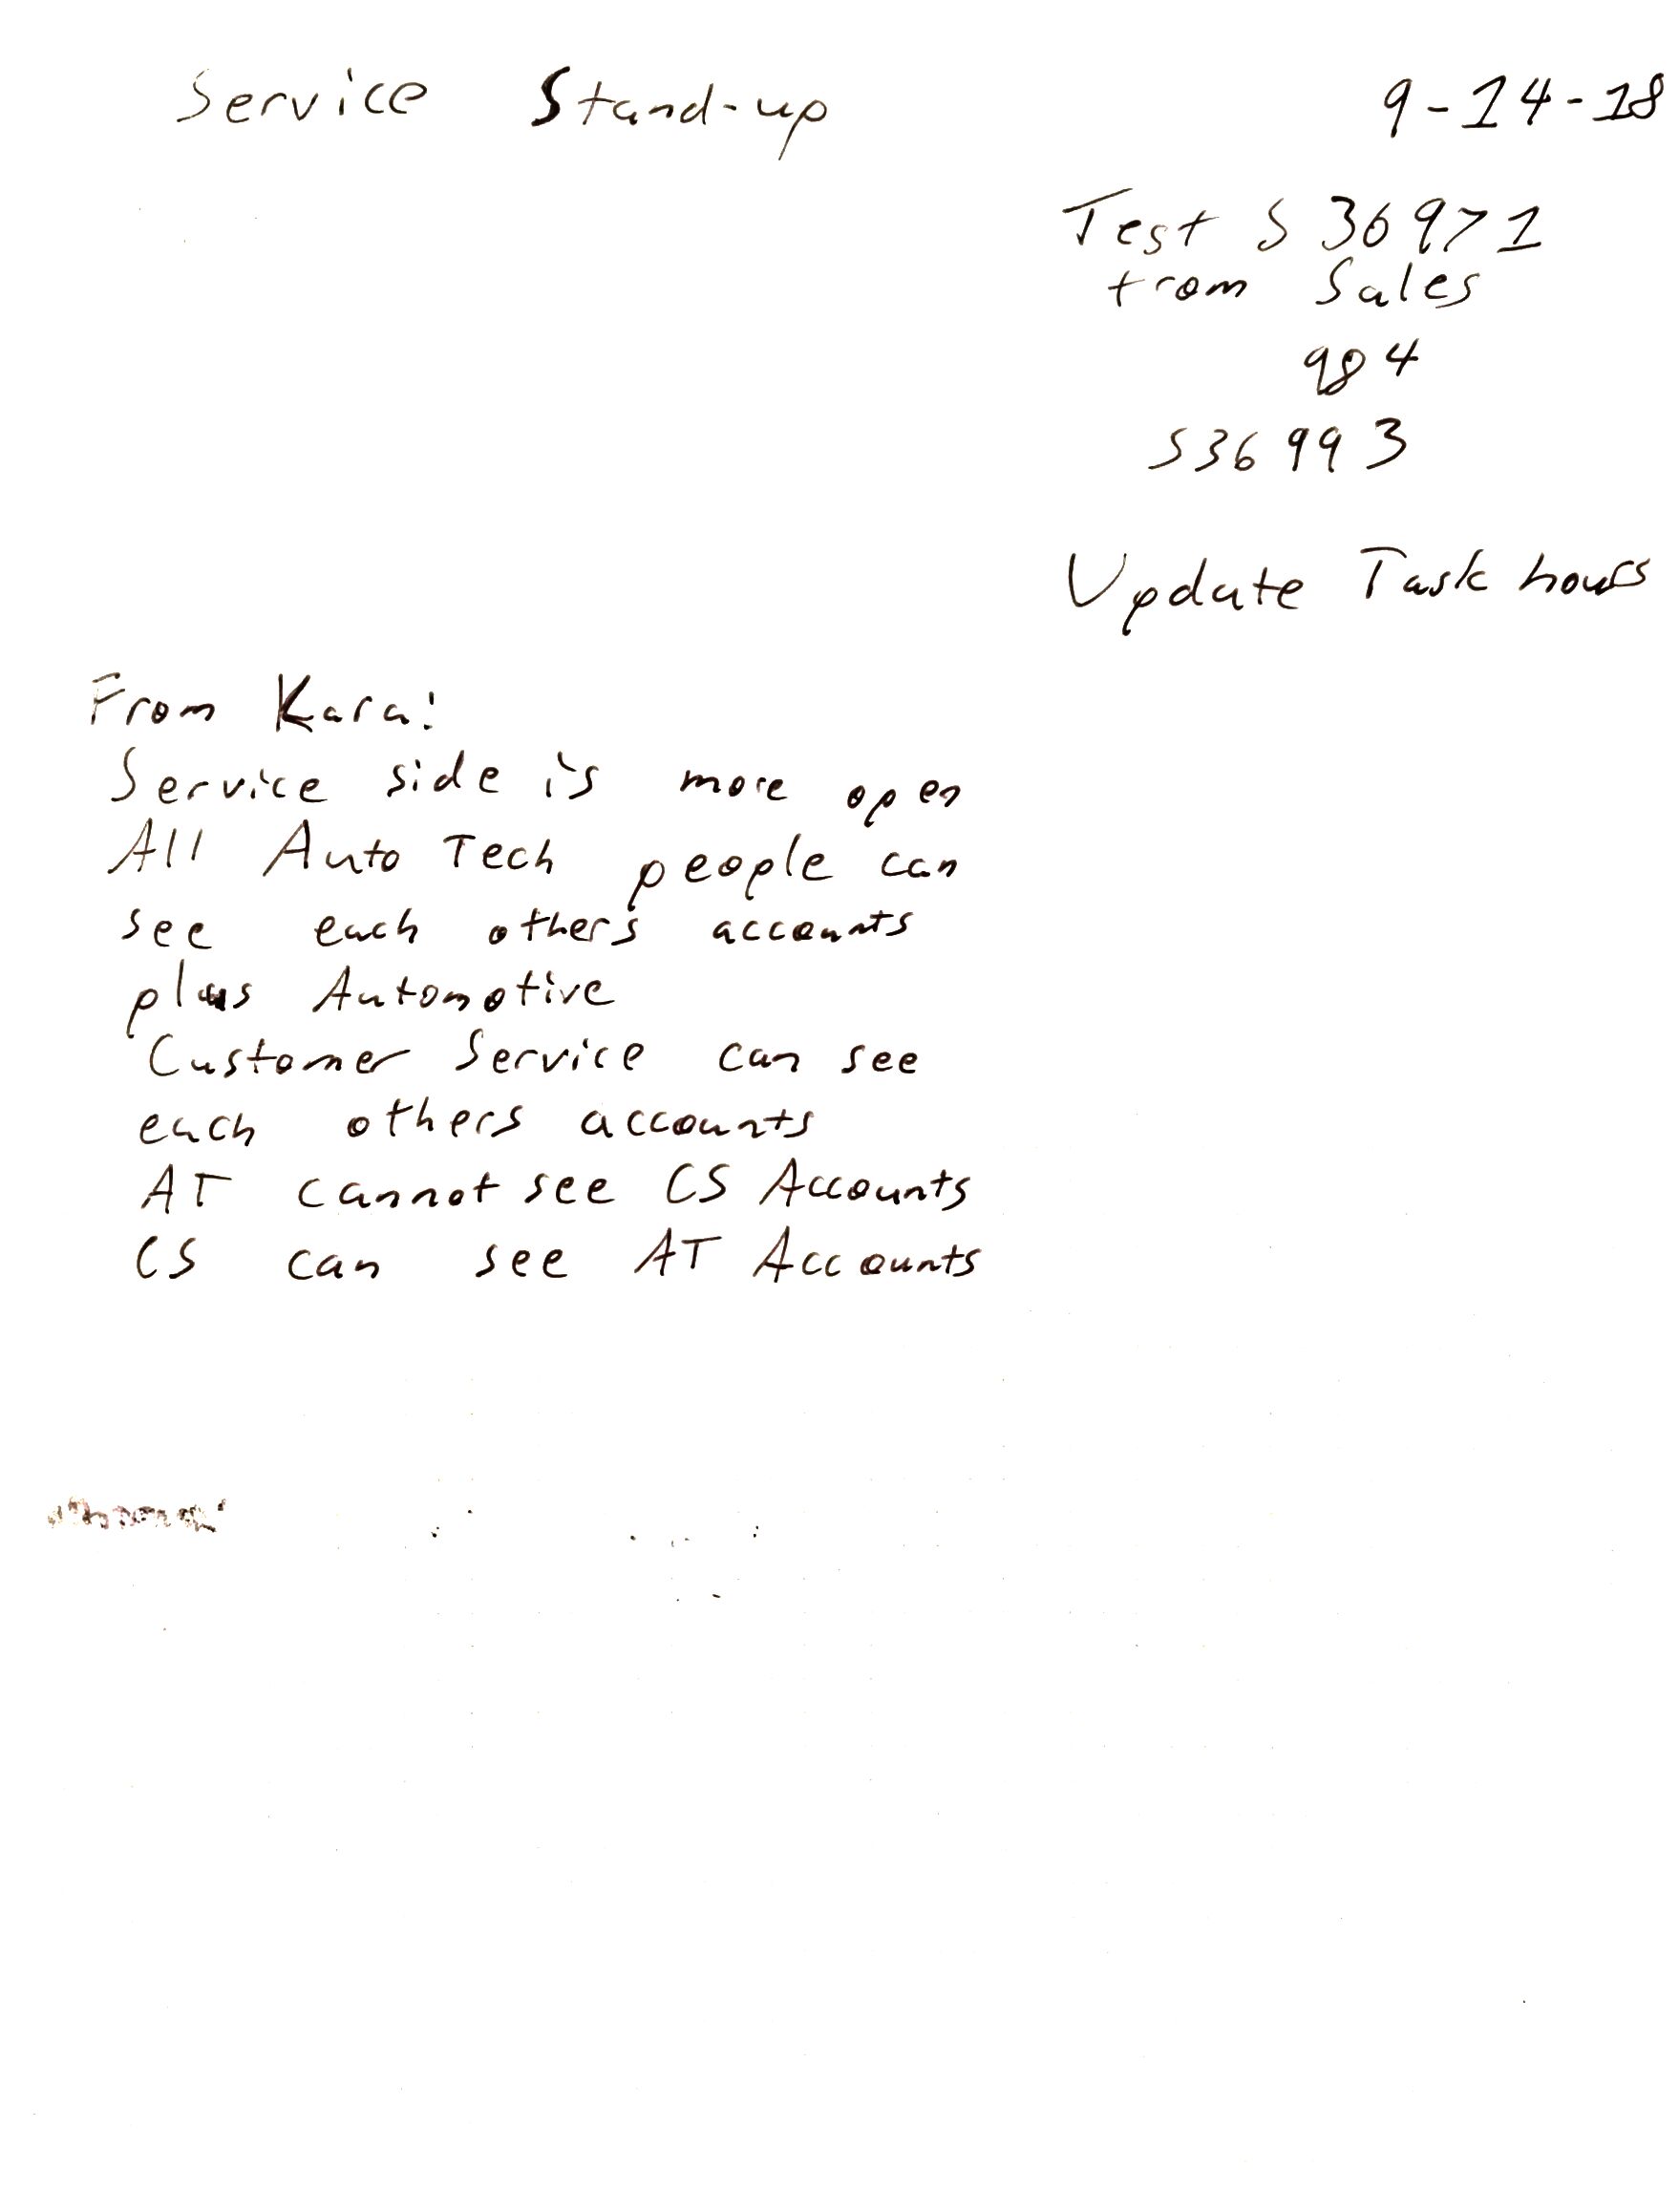 Service Stand-up 9-14-18
Test S 36971
from Sales
984
S36993
Update Task hours
From Kara:
Service side is more open
All Auto Tech people can
see each others accounts
plus Automotive
Customer Service can see
each others accounts
AT cannot see CS Accounts
CS can see AT Accounts